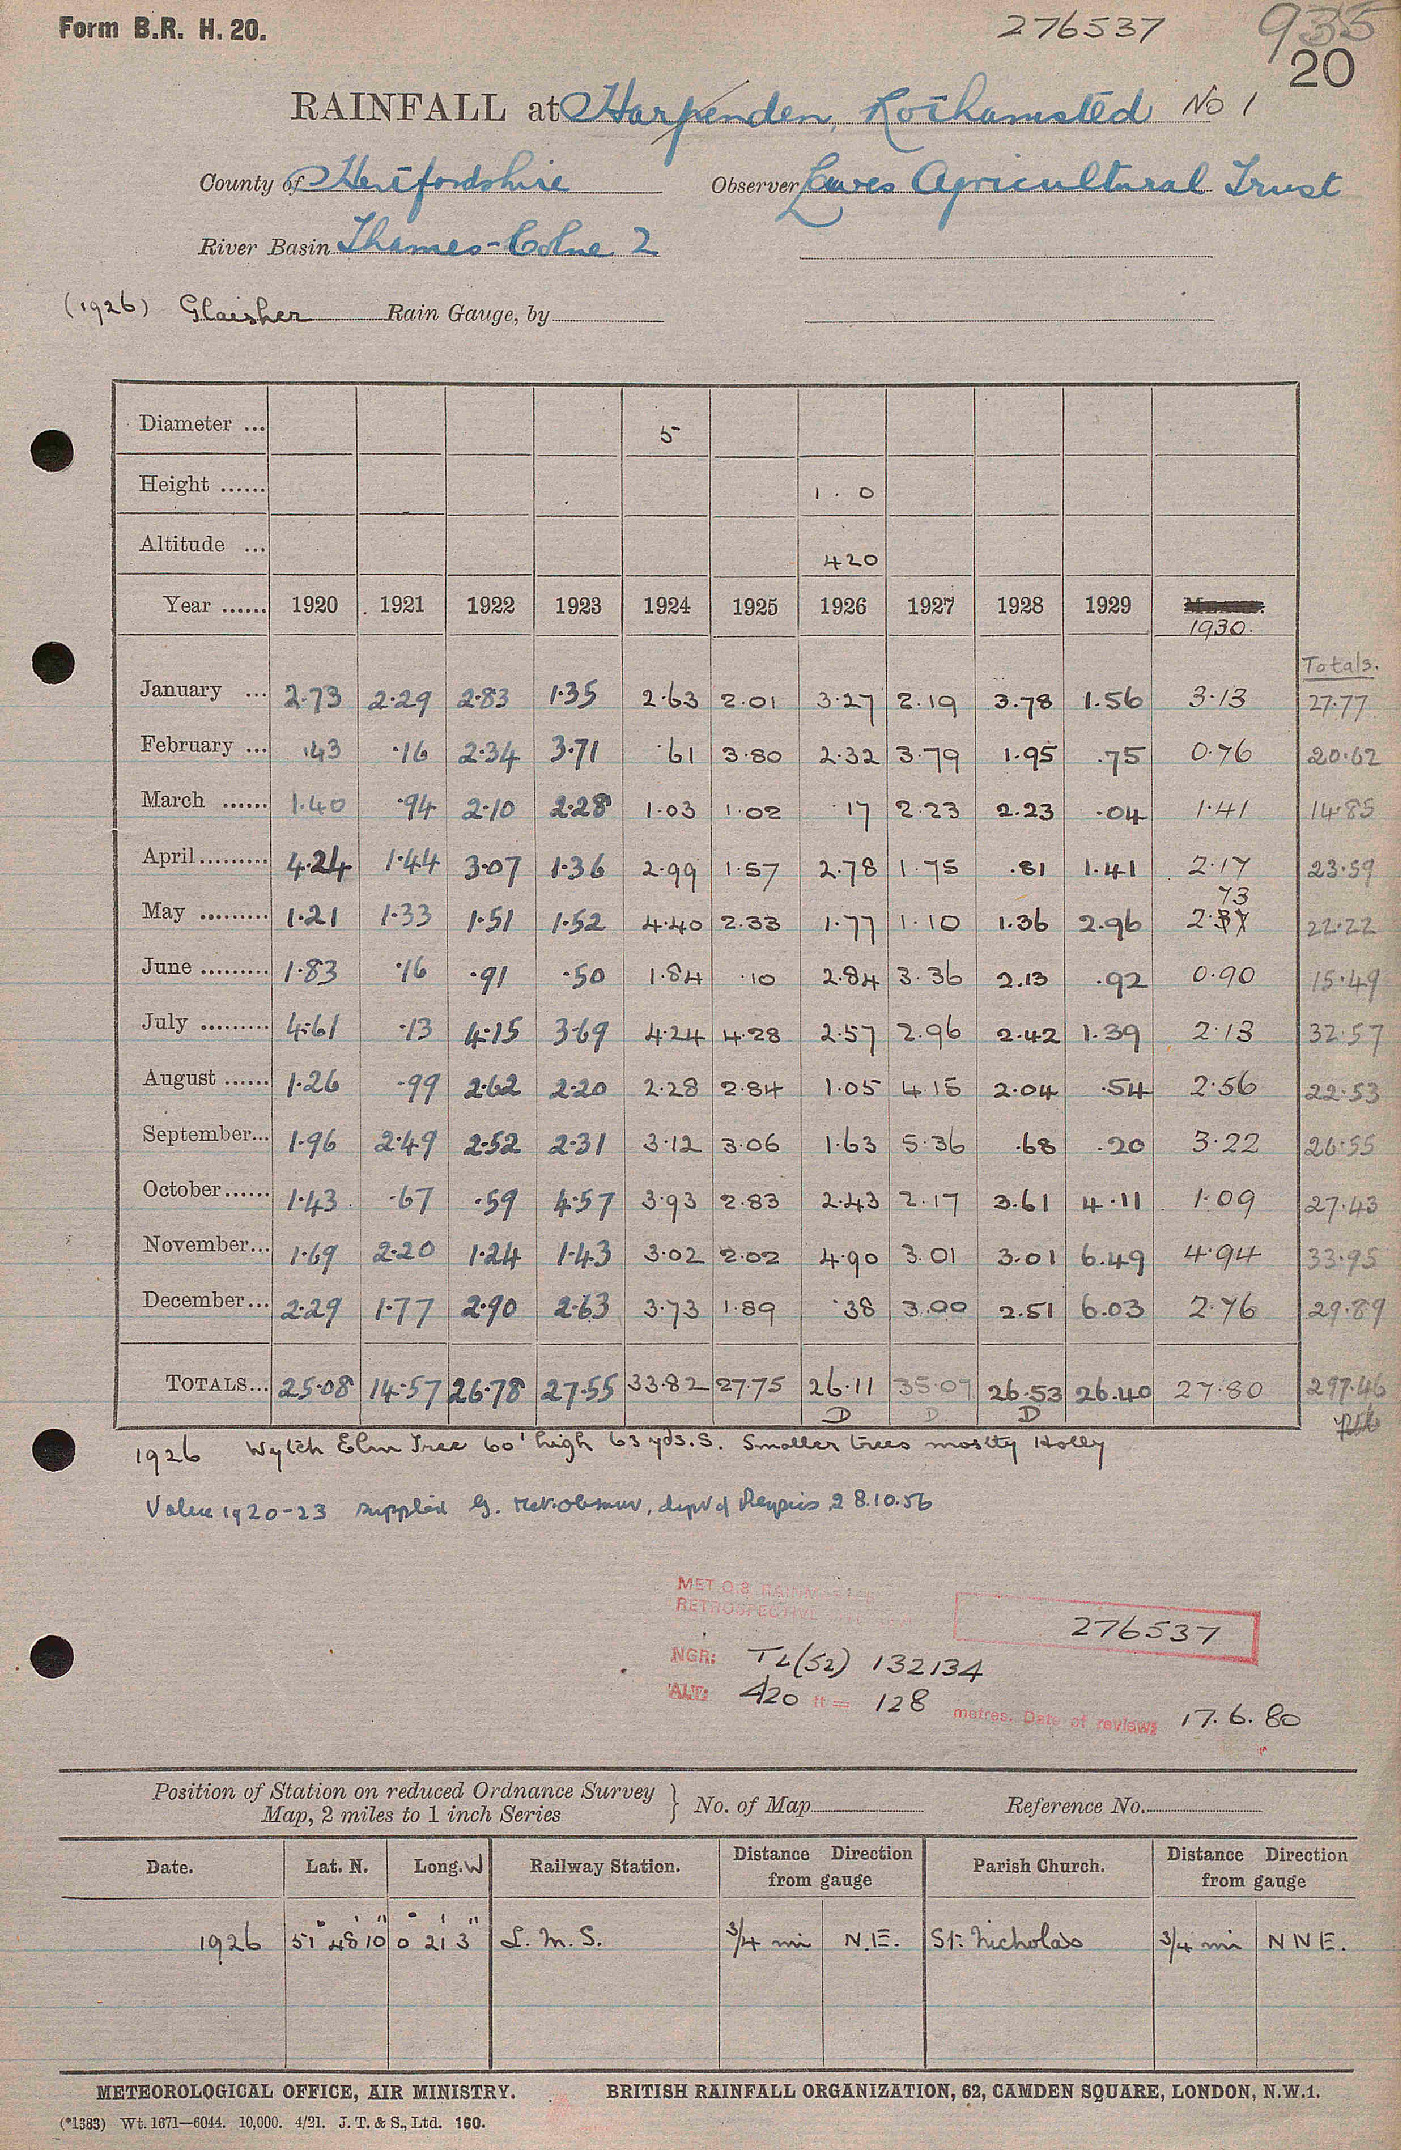 Form B.R. H. 20.
276537
935
20
RAINFALL at Harpenden, Rothamsted No 1
County of Hertfordshire Observer Lawes Agricultural Trust
River Basin Thames-Colne 2
(1926) Glaisher Rain Gauge, by
Diameter ... 5
Height ...... 1.0
Altitude ... 420
Year ...... 1920 1921 1922 1923 1924 1925 1926 1927 1928 1929 1930.
Totals.
January ... 2.73 2.29 2.83 1.35 2.63 2.01 3.27 2.19 3.78 1.56 3.13 27.77
February ... .43 .16 2.34 3.71 .61 3.80 2.32 3.79 1.95 .75 0.76 20.62
March ...... 1.40 .94 2.10 2.28 1.03 1.02 .17 2.23 2.23 .04 1.41 14.85
April ......... 4.24 1.44 3.07 1.36 2.99 1.57 2.78 1.75 .81 1.41 2.17 23.59
May ......... 1.21 1.33 1.51 1.52 4.40 2.33 1.77 1.10 1.36 2.96 2.73 22.22
June ......... 1.83 .16 .91 .50 1.84 .10 2.84 3.36 2.13 .92 0.90 15.49
July ......... 4.61 .13 4.15 3.69 4.24 4.28 2.57 2.96 2.42 1.39 2.13 32.57
August ...... 1.26 .99 2.62 2.20 2.28 2.84 1.05 4.15 2.04 .54 2.56 22.53
September... 1.96 2.49 2.52 2.31 3.12 3.06 1.63 5.36 .68 .20 3.22 26.55
October ...... 1.43 .67 .59 4.57 3.93 2.83 2.43 2.17 3.61 4.11 1.09 27.43
November... 1.69 2.20 1.24 1.43 3.02 2.02 4.90 3.01 3.01 6.49 4.94 33.95
December ... 2.29 1.77 2.90 2.63 3.73 1.89 .38 3.00 2.51 6.03 2.76 29.89
TOTALS... 25.08 14.57 26.78 27.55 33.82 27.75 26.11 35.07 26.53 26.40 27.80 297.46
D D D
1926 Wytch Elm Tree 60' high 63 yds. S. Smaller trees mostly Holly
Value 1920-23 supplied 28.10.56
MET O.8
RETROSPECTIVE
276537
NGR: TL(52) 132134
ALT: 420 ft = 128 metres. Date of review: 17.6.80
Position of Station on reduced Ordnance Survey
Map, 2 miles to 1 inch Series } No. of Map Reference No.
Date. Lat. N. Long. W Railway Station. Distance Direction from gauge Parish Church. Distance Direction from gauge
1926 51° 48' 10" 0° 21' 3" L.M.S. 3/4 mi N.E. St. Nicholas 3/4 mi NNE.
METEOROLOGICAL OFFICE, AIR MINISTRY. BRITISH RAINFALL ORGANIZATION, 62, CAMDEN SQUARE, LONDON, N.W.1.
(*1383) Wt. 1671—6044. 10,000. 4/21. J. T. & S., Ltd. 160.